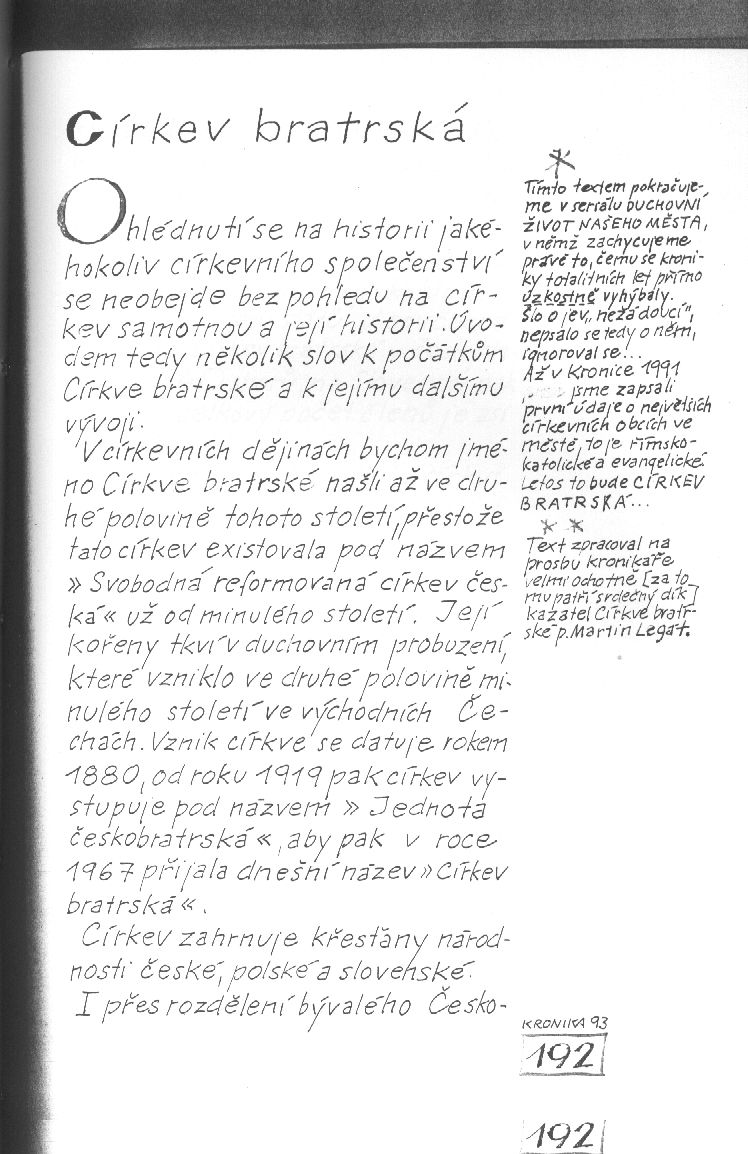 Církev bratrská
Ohlédnutí se na historii jaké-
hokoliv církevního společenství
se neobejde bez pohledu na cír-
kev samotnou a její historii. Úvo-
dem tedy několik slov k počátkům
Církve bratrské a k jejímu dalšímu
vývoji.
V církevních dějinách bychom jmé-
no Církve bratrské našli až ve dru-
hé polovině tohoto století, přestože
tato církev existovala pod názvem
» Svobodná reformovaná církev čes-
ká« už od minulého století. Její
kořeny tkví v duchovním probuzení,
které vzniklo ve druhé polovině mi-
nulého století ve východních Če-
chách. Vznik církve se datuje rokem
1880, od roku 1919 pak církev vy-
stupuje pod názvem » Jednota
českobratrská«, aby pak v roce
1967 přijala dnešní název »Církev
bratrská«.
Církev zahrnuje křesťany národ-
nosti české, polské a slovenské.
I přes rozdělení bývalého Česko-
*
Tímto textem pokračuje-
me v seriálu DUCHOVNÍ
ŽIVOT NAŠEHO MĚSTA,
v němž zachycujeme
právě to, čemu se kroni-
ky totalitních let přímo
úzkostně vyhýbaly.
Šlo o jev „nežádoucí",
nepsalo se tedy o něm,
ignoroval se...
Až v kronice 1991
jsme zapsali
první údaje o největších
církevních obcích ve
městě, to je římsko-
katolické a evangelické.
Letos to bude CÍRKEV
BRATRSKÁ...
* *
Text zpracoval na
prosbu kronikáře
velmi ochotně [za to
mu patří srdečný dík]
kazatel Církve bratr-
ské p. Martin Legát.
KRONIKA 93
192
192